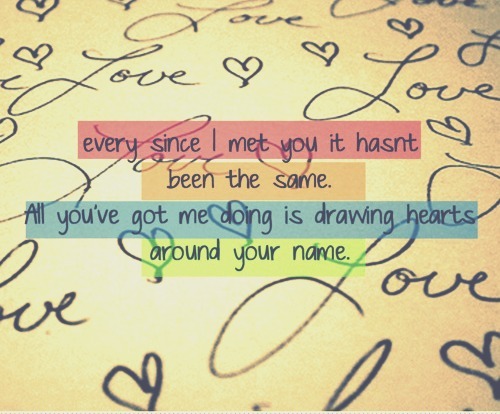 Love
Love
Love
every since I met you it hasnt
been the same.
All you've got me doing is drawing hearts
around your name.
Love
ove